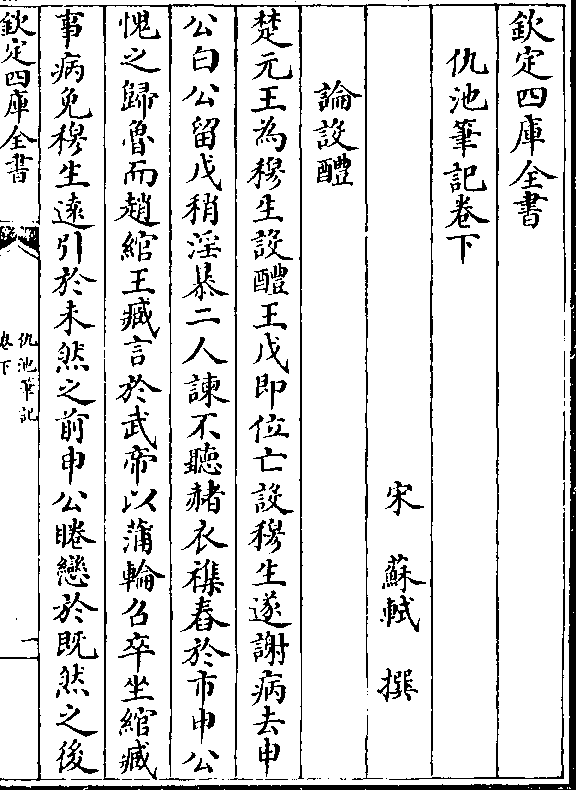 欽定四庫全書
仇池筆記卷下
宋 蘇軾 撰
論設醴
楚元王為穆生設醴王戊即位亡設穆生遂謝病去申
公白公留戊稍淫暴二人諫不聽赭衣雜舂於市申公
愧之歸魯而趙綰王臧言於武帝以蒲輪召卒坐綰臧
事病免穆生遠引於未然之前申公睠戀於既然之後
欽定四庫全書
仇池筆記
卷下
一